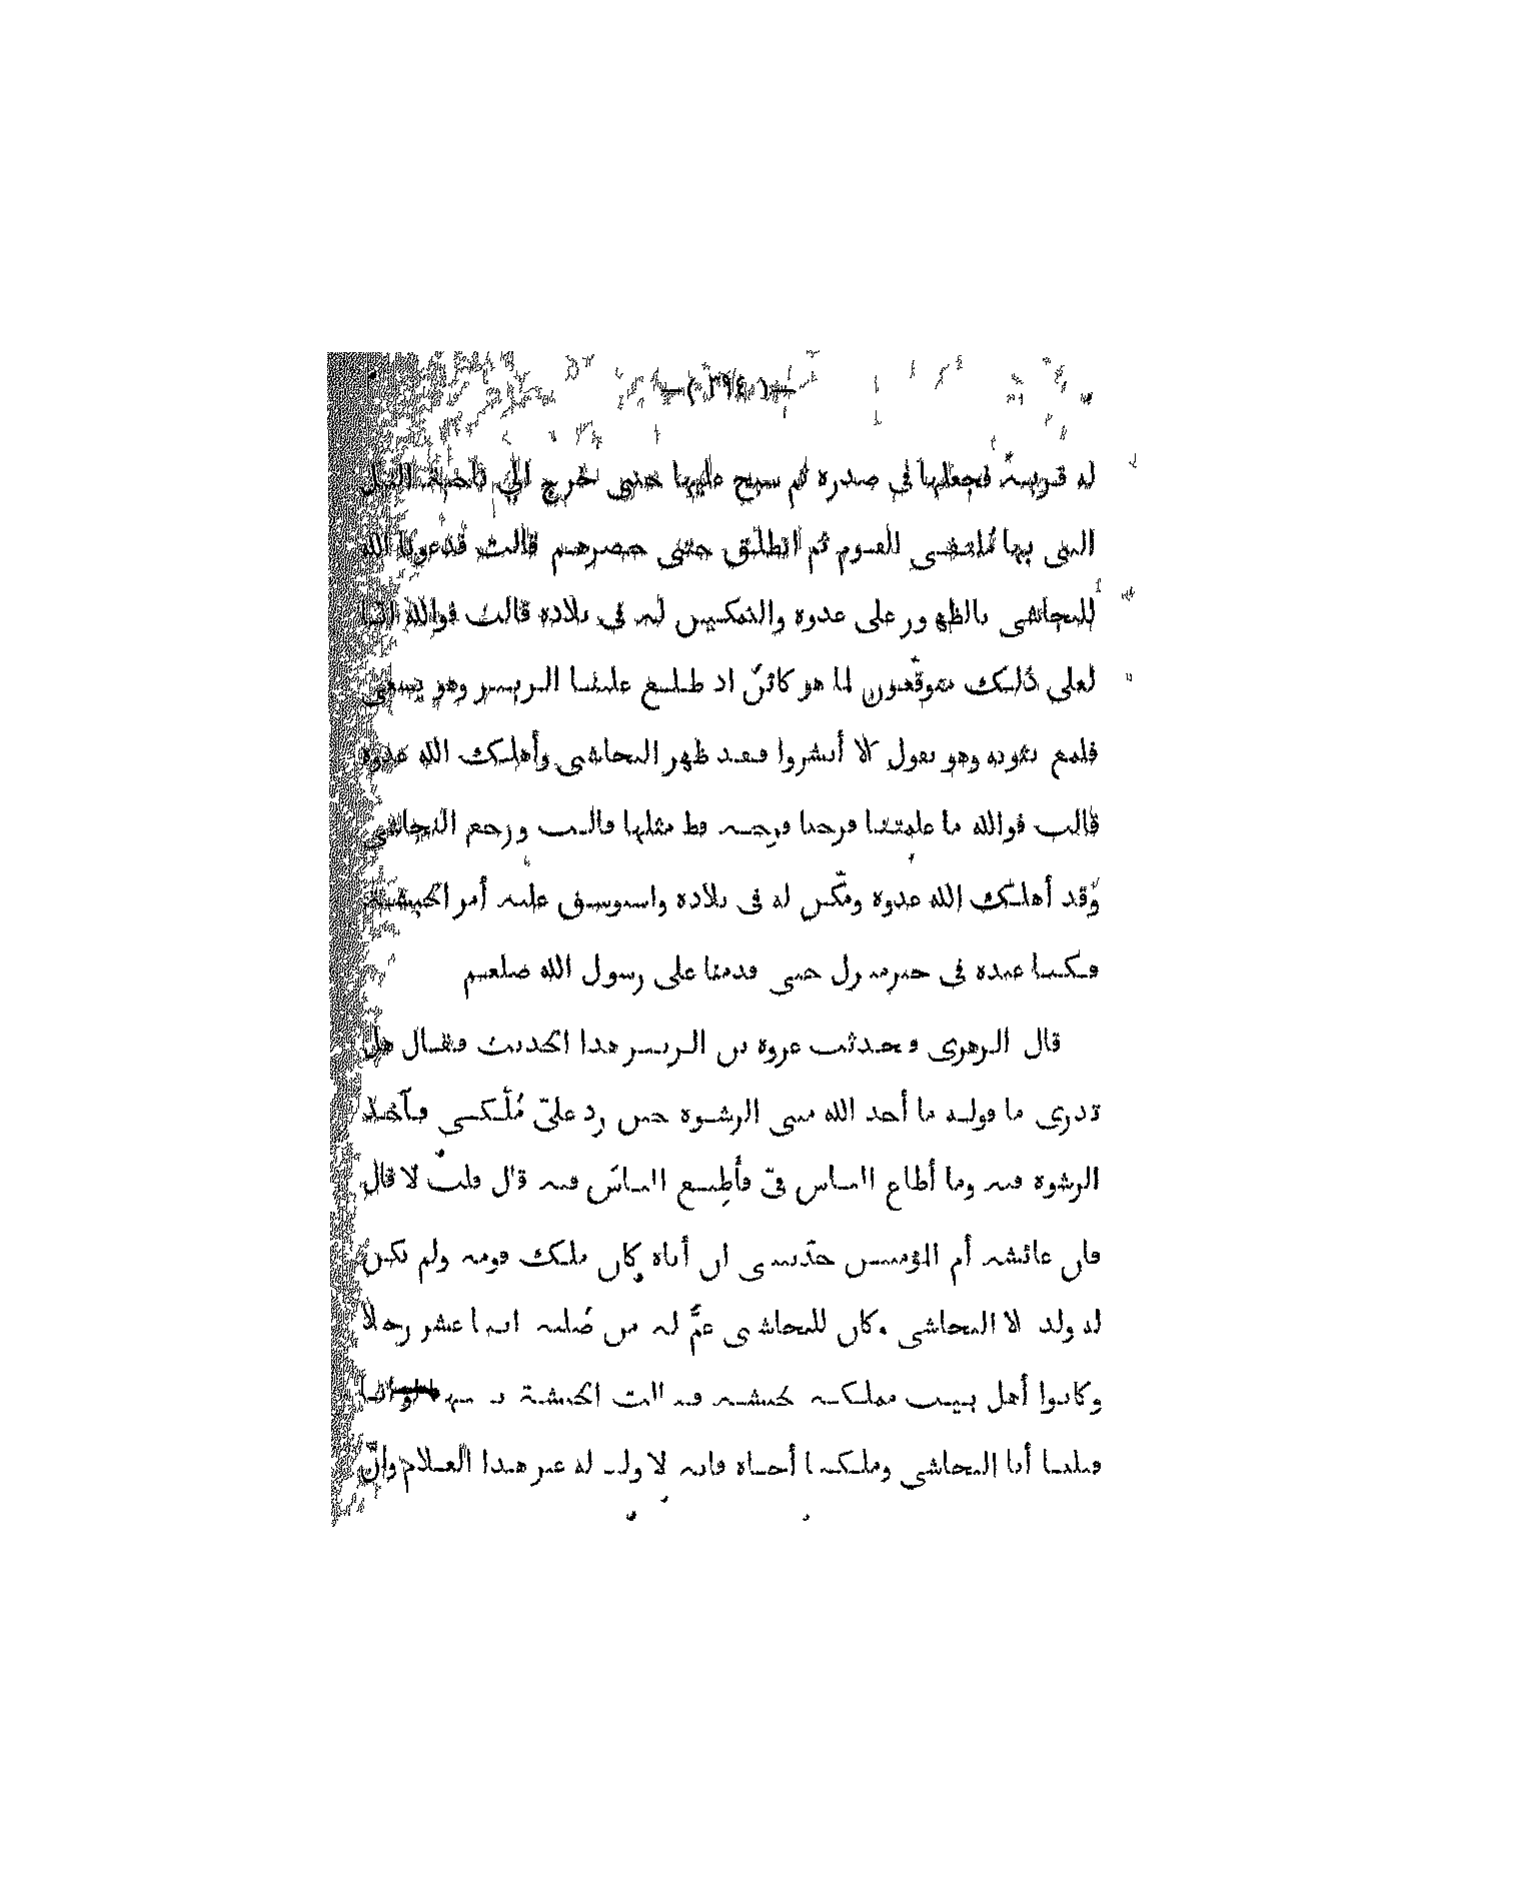 —( ٣٩٤ )—
له قربة فجعلها في صدره ثم سبح عليها حتى خرج الي ناحية النيل
التي بها مُلتقى القوم ثم انطلق حتى حضرهم قالت فدعونا الله
للنجاشي بالظهور على عدوه والتمكين له في بلاده قالت فوالله انا
لعلى ذلك متوقعون لما هو كائن اذ طلع علينا الزبير وهو يسعى
فلمع بثوبه وهو يقول ألا أبشروا فقد ظهر النجاشي وأهلك الله عدوه
قالت فوالله ما علمتنا فرحنا فرحة قط مثلها قالت ورجع النجاشي
وقد أهلك الله عدوه ومكّن له في بلاده واستوسق عليه أمر الحبشة
فكنا عنده في خير منزل حتى قدمنا على رسول الله صلعم
قال الزهري فحدثت عروة بن الزبير هذا الحديث فقال هل
تدري ما قوله ما أخذ الله مني الرشوة حين رد عليّ مُلْكي فآخذ
الرشوة فيه وما أطاع الناس فيّ فأُطِيع الناسَ فيه قال قلت لا قال
فان عائشة أم المؤمنين حدّثتني ان أباه كان ملك قومه ولم يكن
له ولد الا النجاشي وكان للنجاشي عمٌّ له من صُلبه اثنا عشر رجلا
وكانوا أهل بيت مملكة الحبشة فقالت الحبشة بينها لو أنا
قتلنا أبا النجاشي وملكنا أخاه فانه لا ولد له غير هذا الغلام وانّ